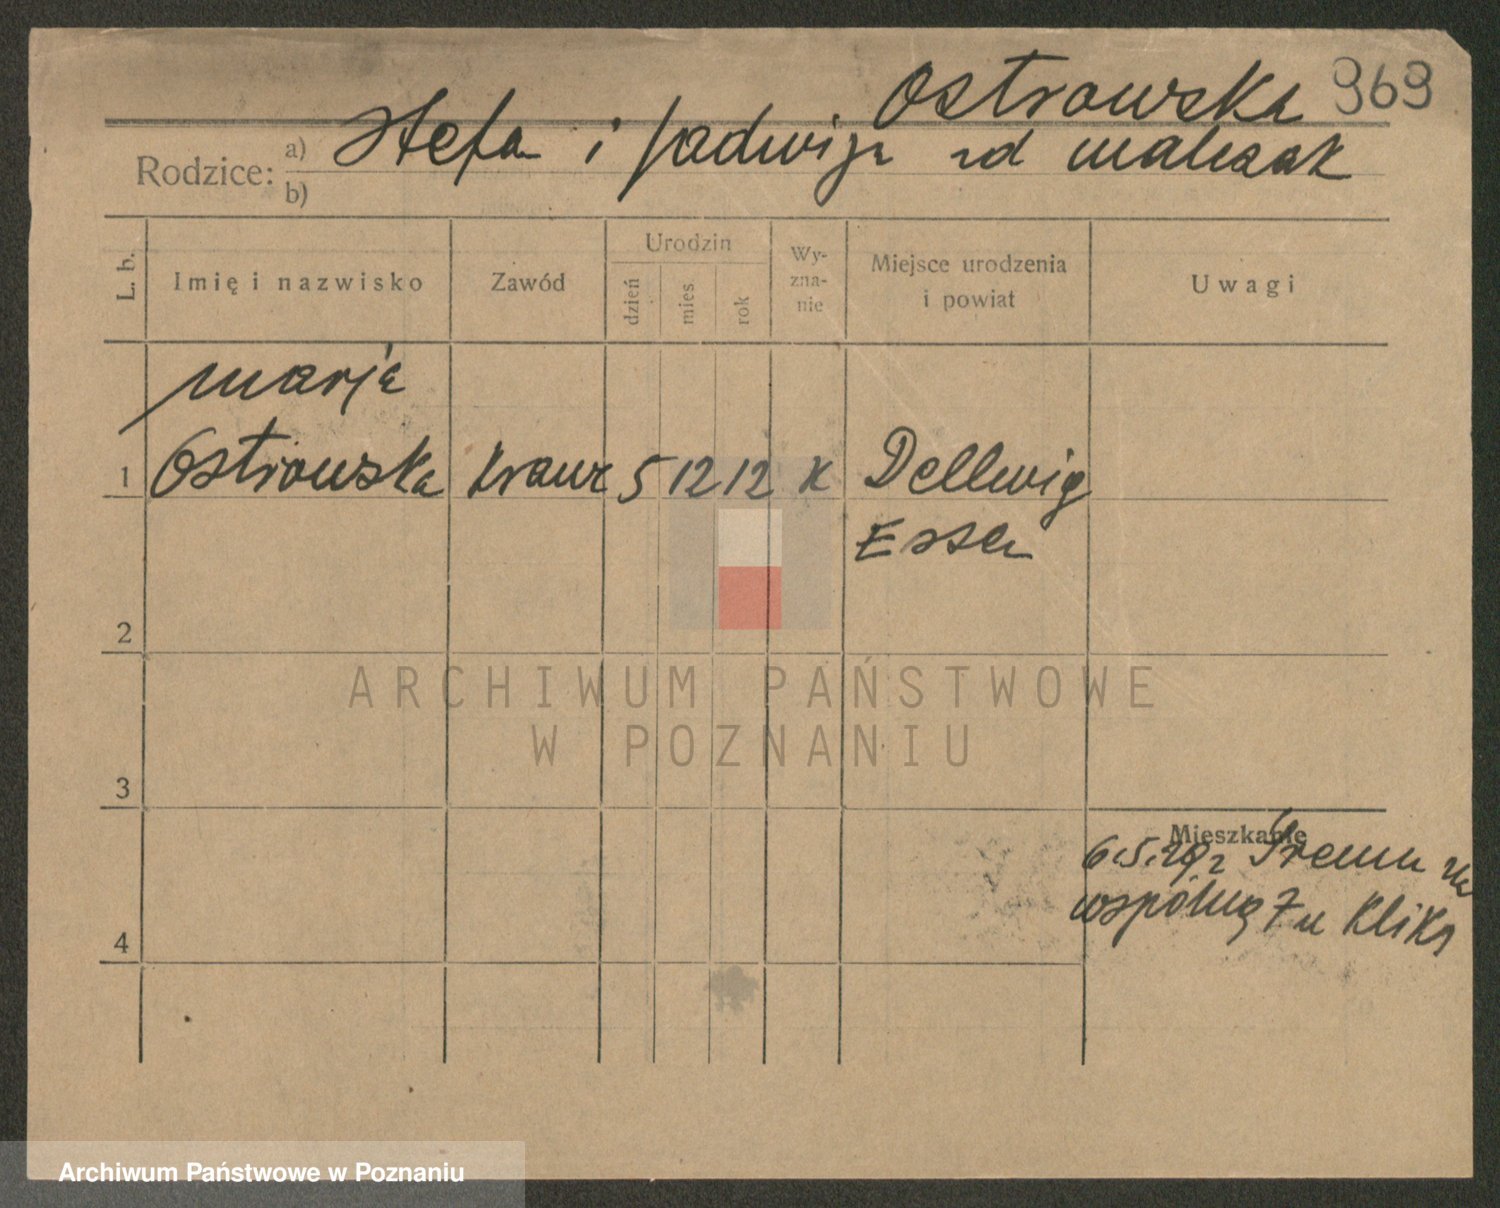 Ostrowska 969
Rodzice: a) Stefan i Jadwiga zd Walczak
b)
L. b. Imię i nazwisko Zawód Urodzin dzień mies. rok Wyznanie Miejsce urodzenia i powiat Uwagi
Marja
1 Ostrowska krawc 5 12 12 K Dellwig
Essen
2
ARCHIWUM PAŃSTWOWE
W POZNANIU
3
Mieszkanie
6.5.29 z Śremu na
wspólną 7 u Klika
4
Archiwum Państwowe w Poznaniu